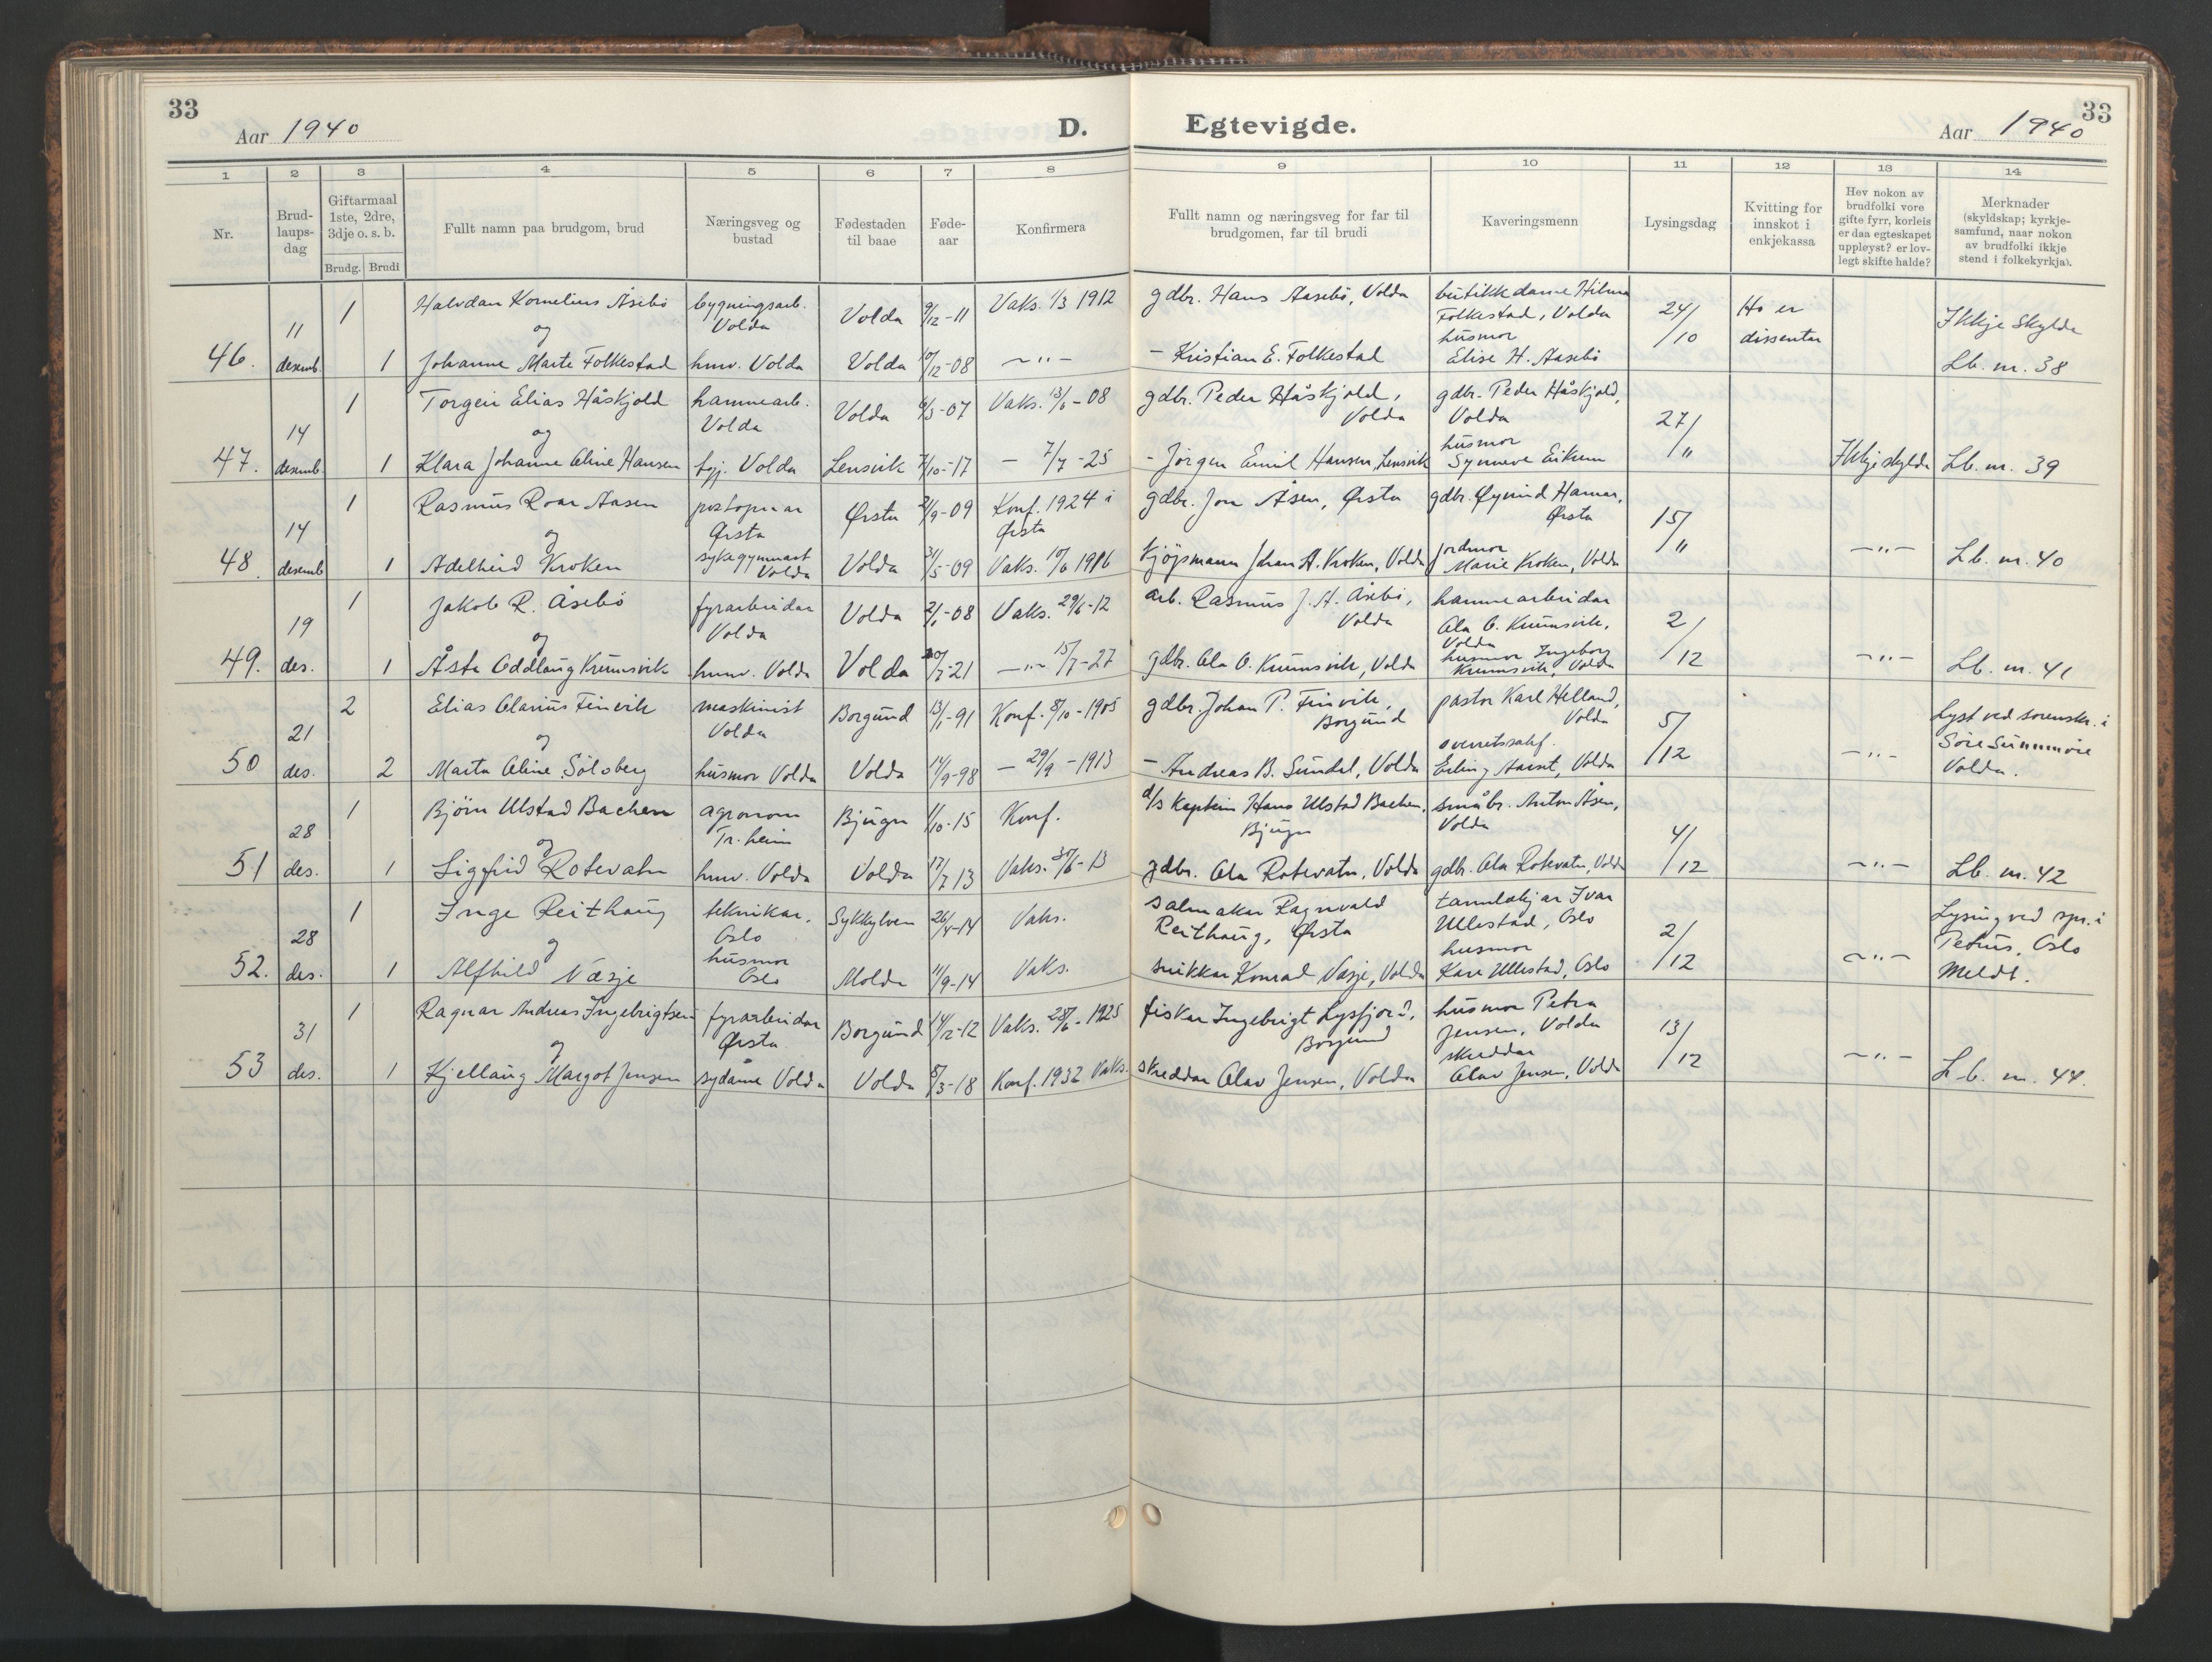 33
Aar 1940
D.
Egtevigde.
Aar 1940
33
1 2 3 4 5 6 7 8 9 10 11 12 13 14
Nr.
Brud-
laups-
dag
Giftarmaal
1ste, 2dre,
3dje o. s. b.
Brudg. Brudi
Fullt namn paa brudgom, brud
Næringsveg og
bustad
Fødestaden
til baae
Føde-
aar
Konfirmera
Fullt namn og næringsveg for far til
brudgomen, far til brudi
Kaveringsmenn
Lysingsdag
Kvitting for
innskot i
enkjekassa
Hev nokon av
brudfolki vore
gifte fyrr, korleis
er daa egteskapet
uppløyst? er lov-
legt skifte halde?
Merknader
(skyldskap; kyrkje-
samfund, naar nokon
av brudfolki ikkje
stend i folkekyrkja).
46. 11 desemb.
1 Halvdan Kornelius Åsebö bygningsarb. Volda Volda 9/12-11 Vaks. 1/3 1912 gdbr. Hans Aasebö, Volda
og
1 Johanne Marte Folkestad huv. Volda Volda 10/12-08 -"- - Kristian E. Folkestad
butikkdame Hilma
Folkestad, Volda
husmor
Elise H. Aasebö
24/10
Ho er
dissentar
Ikkje skylde
Lb. nr. 38
47. 14 desemb.
1 Torgeir Elias Håskjold hamnearb. Volda Volda 6/3-07 Vaks. 13/6-08 gdbr. Peder Håskjold, Volda
og
1 Klara Johanne Aline Hansen tyj. Volda Lensvik 7/10-17 - 7/7-25 - Jörgen Emil Hansen, Lensvik
gdbr. Peder Håskjold,
Volda
husmor
Synneve Eikrem
27/11
Ikkje skylde
Lb. nr. 39
48. 14 desemb
1 Rasmus Roar Aasen postopnar Ørsta Ørsta 21/9-09 Konf. 1924 i Ørsta gdbr. Jon Åsen, Ørsta
og
1 Adelheid Kroken sykegymnast Volda Volda 31/5-09 Vaks. 10/6 1916 kjöpmann Johan A. Kroken, Volda
gdbr. Øyvind Hamar,
Ørsta
jordmor
Marie Kroken, Volda
15/11
-"-
Lb. nr. 40
49. 19 des.
1 Jakob R. Åsebö fyrarbeidar Volda Volda 2/1-08 Vaks. 29/6-12 arb. Rasmus J. A. Åsebö, Volda
og
1 Åsta Oddlaug Krumsvik huv. Volda Volda 20/7-21 -"- 15/7-27 gdbr. Ola O. Krumsvik, Volda
hamnearbeidar
Ola O. Krumsvik,
Volda
husmor Ingeborg
Krumsvik, Volda
2/12
-"-
Lb. nr. 41
50 21 des.
2 Elias Olarius Finvik maskinist Volda Borgund 13/1-91 Konf. 8/10-1905 gdbr. Johan P. Finvik, Borgund
og
2 Marta Oline Sölsberg husmor Volda Volda 14/9-98 - 29/9-1913 - Andreas B. Sundal, Volda
pastor Karl Helland,
Volda
overretssakf.
Erling Aarset, Volda
5/12
-"-
Lyst ved sorenskr. i
Søre Sunnmøre
Volda.
51 28 des.
1 Björn Ulstad Bachen agronom Tr.heim Bjugn 1/10-15 Konf. d/s Kaptein Hans Ulstad Bachen, Bjugn
og
1 Sigfrid Rotevatn huv. Volda Volda 17/7 13 Vaks. 30/6-13 gdbr. Ola Rotevatn, Volda
småbr. Anton Åsen,
Volda
gdbr. Ola Rotevatn, Volda
4/12
-"-
Lb. nr. 42
52. 28 des.
1 Inge Reithaug teknikar, Oslo Sykkylven 26/4-14 Vaks. salmakar Ragnvald Reithaug, Ørsta
og
1 Alfhild Væje husmor Oslo Molde 11/9-14 Vaks. snikkar Konrad Væje, Volda
tannlækjar Ivar
Ullestad, Oslo
husmor
Kare Ullestad, Oslo
2/12
-"-
Lysing ved spr. i
Petrus, Oslo
Meldt.
53 31 des.
1 Ragnar Andreas Ingebrigtsen fyrarbeidar Ørsta Borgund 14/12-12 Vaks. 28/6-1925 fiskar Ingebrigt Lysfjord, Borgund
og
1 Kjellaug Margot Jensen sydame Volda Volda 8/3-18 Konf. 1932 Vaks. skreddar Olav Jensen, Volda
husmor Petra
Jensen, Volda
skreddar
Olav Jensen, Volda
13/12
-"-
Lb. nr. 44.